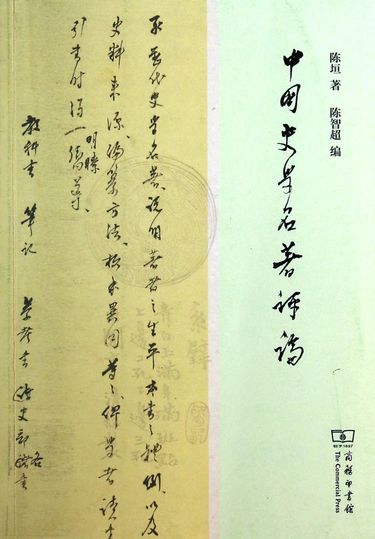 陈垣 著 陈智超 编
中国史学名著评论
代史学名著、说明著者之生平本书之体例、以及
史料来源、编纂方法、板本异同等等、俾学者读
引书时得一
明瞭
教科书 笔记 参考书
商务印书馆
The Commercial Press